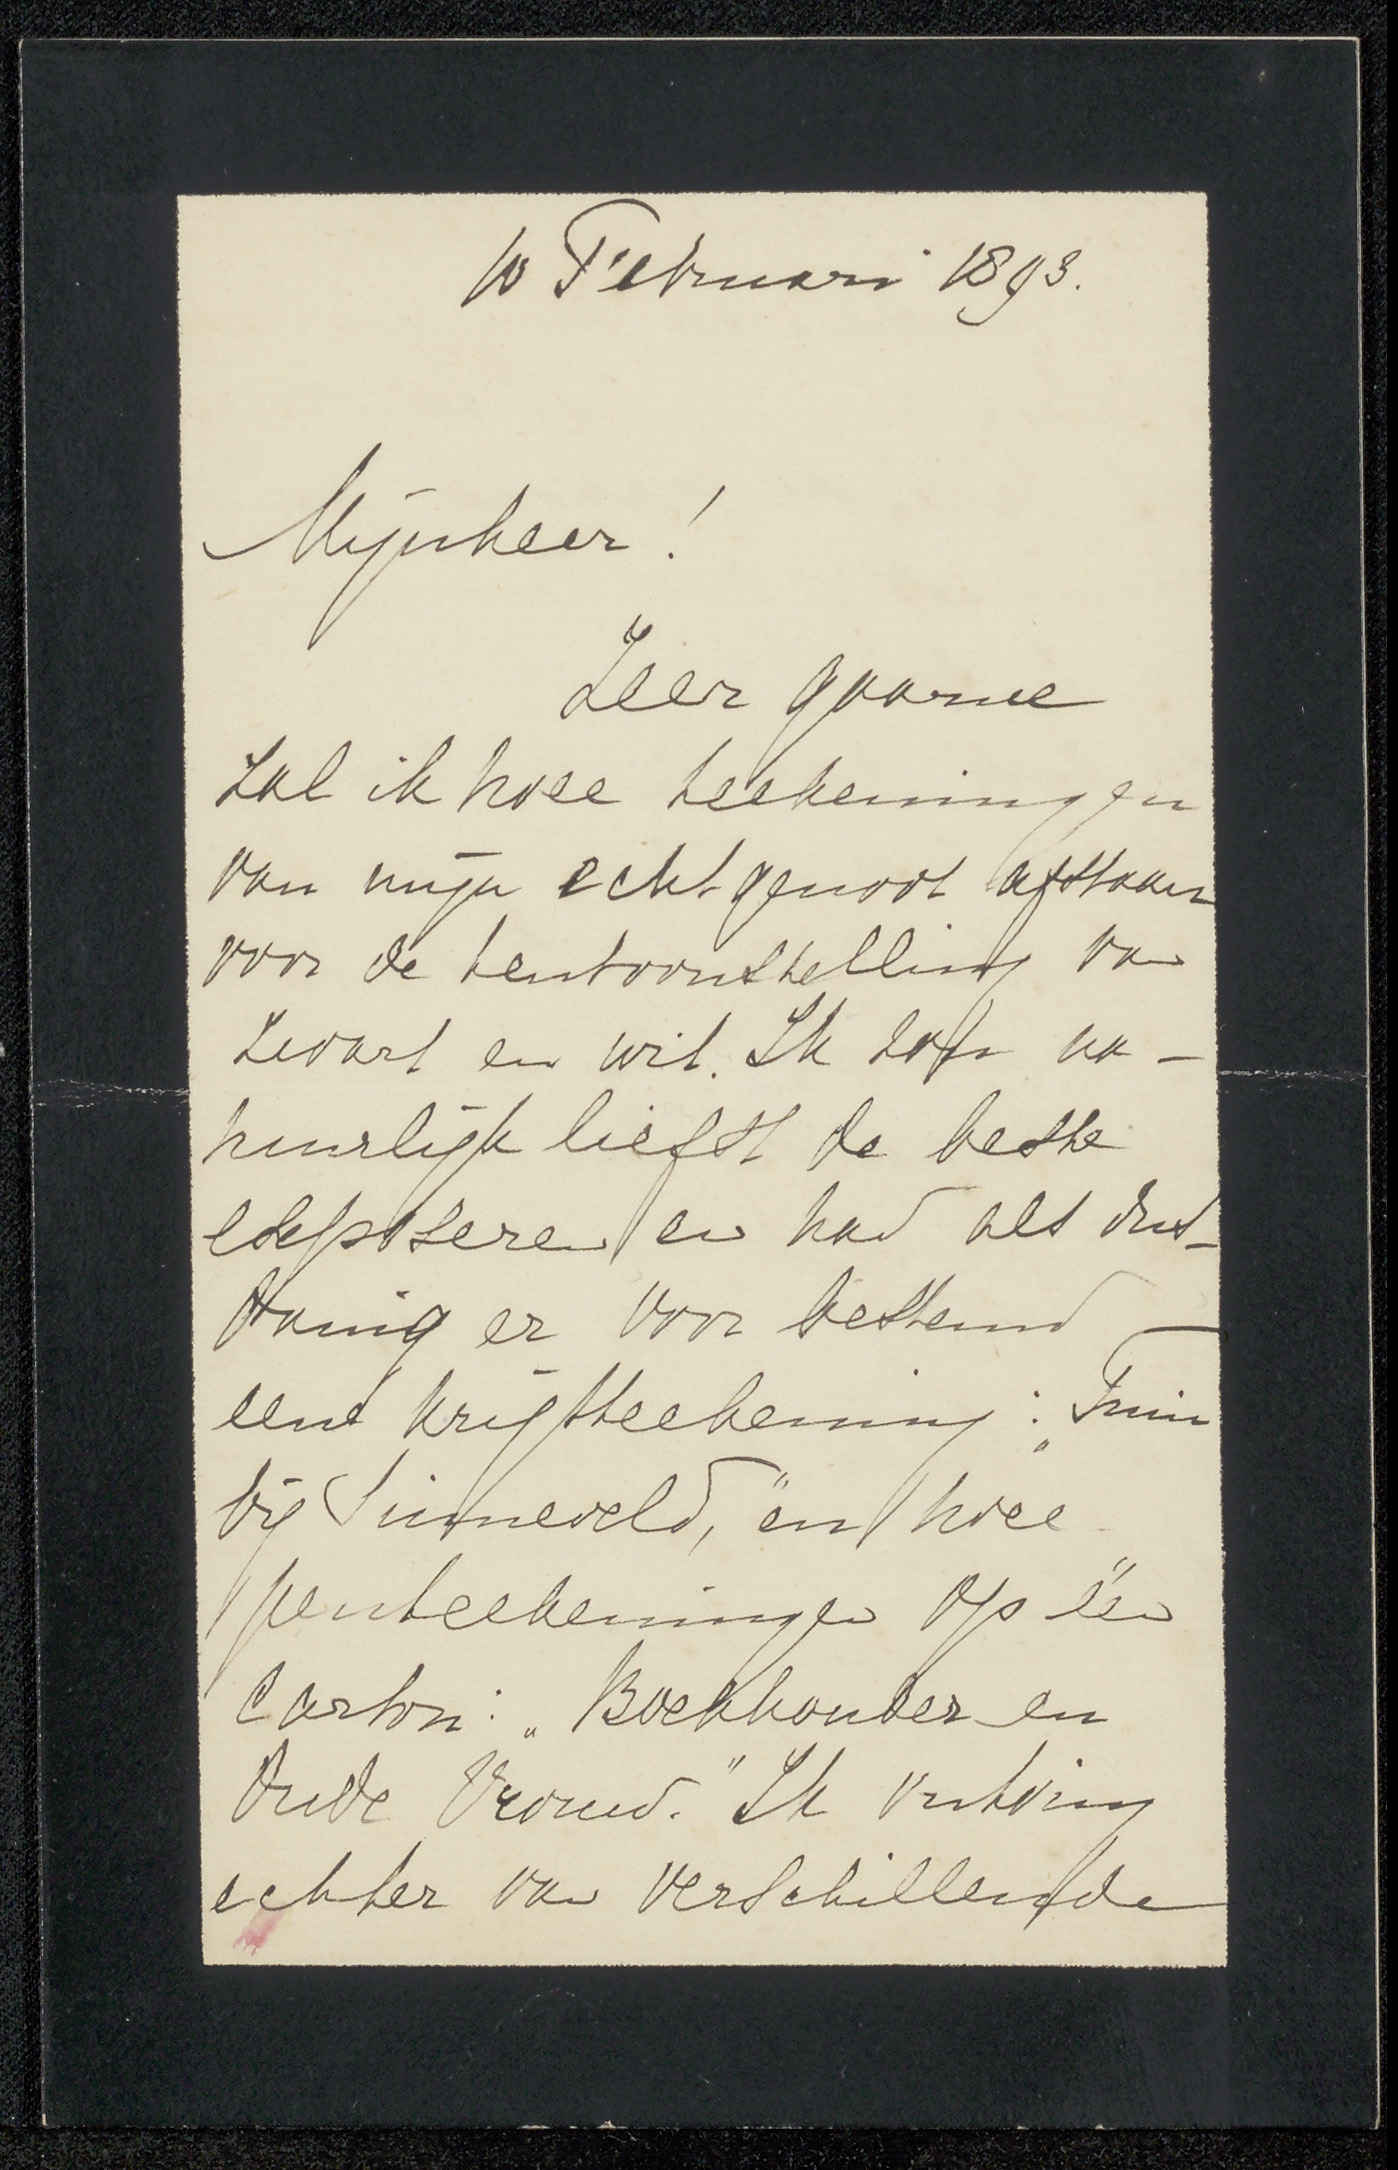 10 Februari 1893.
Mijnheer!
Zeer gaarne
zal ik twee teekeningen
van mijn echtgenoot afstaan
voor de tentoonstelling van
zwart en wit. Ik zou na-
tuurlijk liefst de beste
exposeren en had als zoo-
danig er voor bestemd
eene krijtteekening: „Tuin
bij Sinneveld," en twee
penteekeningen op één
carton: „Boekhouder en
Oude Vrouw." Ik ontving
echter van verschillende